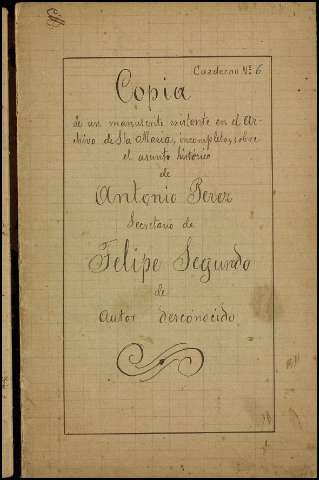 Cuaderno Nº 6
Copia
de un manuscrito existente en el Ar-
chivo de Sta Maria, incompleto, sobre
el asunto histórico
de
Antonio Perez
Secretario de
Felipe Segundo
de
autor desconocido